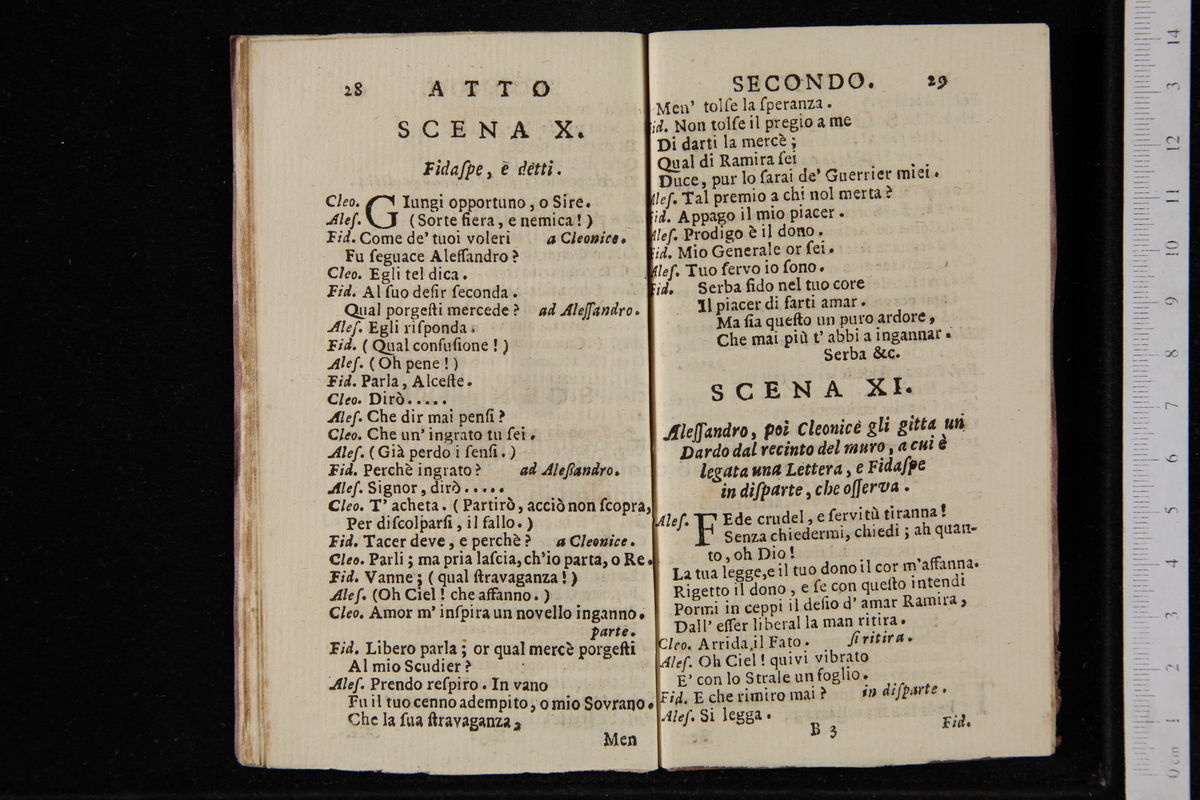 28 ATTO
SCENA X.
Fidaſpe, è detti.
Cleo. GIungi opportuno, o Sire.
Aleſ. (Sorte fiera, e nemica!)
Fid. Come de' tuoi voleri a Cleonice.
Fu ſeguace Aleſſandro?
Cleo. Egli tel dica.
Fid. Al ſuo deſir ſeconda.
Qual porgeſti mercede? ad Aleſſandro.
Aleſ. Egli riſponda.
Fid. (Qual confuſione!)
Aleſ. (Oh pene!)
Fid. Parla, Alceſte.
Cleo. Dirò.....
Aleſ. Che dir mai penſi?
Cleo. Che un' ingrato tu ſei.
Aleſ. (Già perdo i ſenſi.)
Fid. Perchè ingrato? ad Aleßandro.
Aleſ. Signor, dirò.....
Cleo. T' acheta. (Partirò, acciò non ſcopra,
Per diſcolparſi, il fallo.)
Fid. Tacer deve, e perchè? a Cleonice.
Cleo. Parli; ma pria laſcia, ch'io parta, o Re.
Fid. Vanne; (qual ſtravaganza!)
Aleſ. (Oh Ciel! che affanno.)
Cleo. Amor m' inſpira un novello inganno.
parte.
Fid. Libero parla; or qual mercè porgeſti
Al mio Scudier?
Aleſ. Prendo reſpiro. In vano
Fu il tuo cenno adempito, o mio Sovrano.
Che la ſua ſtravaganza,
Men
SECONDO. 29
Men' tolſe la ſperanza.
id. Non tolſe il pregio a me
Di darti la mercè;
Qual di Ramira ſei
Duce, pur lo ſarai de' Guerrier miei.
Aleſ. Tal premio a chi nol merta?
id. Appago il mio piacer.
Aleſ. Prodigo è il dono.
id. Mio Generale or ſei.
Aleſ. Tuo ſervo io ſono.
Fid. Serba fido nel tuo core
Il piacer di farti amar.
Ma ſia queſto un puro ardore,
Che mai più t' abbi a ingannar.
Serba &c.
SCENA XI.
Aleſſandro, poi Cleonice gli gitta un
Dardo dal recinto del muro, a cui è
legata una Lettera, e Fidaſpe
in diſparte, che oſſerva.
Aleſ. FEde crudel, e ſervitù tiranna!
Senza chiedermi, chiedi; ah quan-
to, oh Dio!
La tua legge,e il tuo dono il cor m'affanna.
Rigetto il dono, e ſe con queſto intendi
Pormi in ceppi il deſio d' amar Ramira,
Dall' eſſer liberal la man ritira.
Cleo. Arrida il Fato. ſi ritira.
Aleſ. Oh Ciel! quivi vibrato
E' con lo Strale un foglio.
Fid. E che rimiro mai? in diſparte.
Aleſ. Si legga.
B 3 Fid.
0 cm 1 2 3 4 5 6 7 8 9 10 11 12 13 14